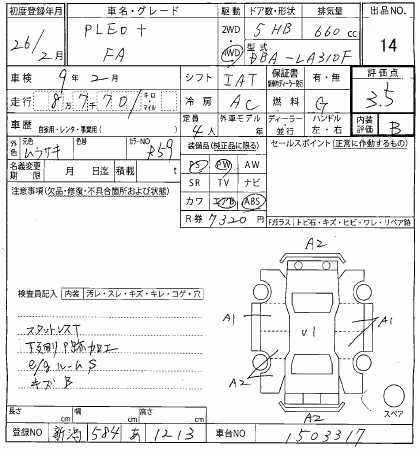 初度登録年月 車名・グレード 駆動 ドア数・形状 排気量 出品NO.
26/2月 PLEO+ FA 2WD 4WD 5HB 660cc 14
型式 DBA-LA310F
車検 9年2月 シフト IAT 保証書 有・無 評価点 3.5
走行 8万7千70 キロ マイル 冷房 AC 燃料 G
車歴 自家用・レンタ・事業用( ) 定員 4人 外車モデル 年 ディーラー・並行 ハンドル 左・右 内装評価 B
外色 元色 ムラサキ 色替 カラーNO R59
名義変更期限 月 日迄 積載 t
装備品(純正品に限る)
PS PW AW
SR TV ナビ
カワ エアB ABS
R券 7320円
セールスポイント(正常に作動するもの)
注意事項(欠品・修復・不具合箇所および状態)
Fガラス トビ石・キズ・ヒビ・ワレ・リペア跡
検査員記入 内装 汚レ・スレ・キズ・キレ・コゲ・穴
スタットレスT
下回りP跡加工
e/gルームS
キズB
A2
A1 V1 A1
A2
A2
スペア
長さ cm 幅 cm 高さ cm
登録NO 新潟 584 あ 1213 車台NO 1503317